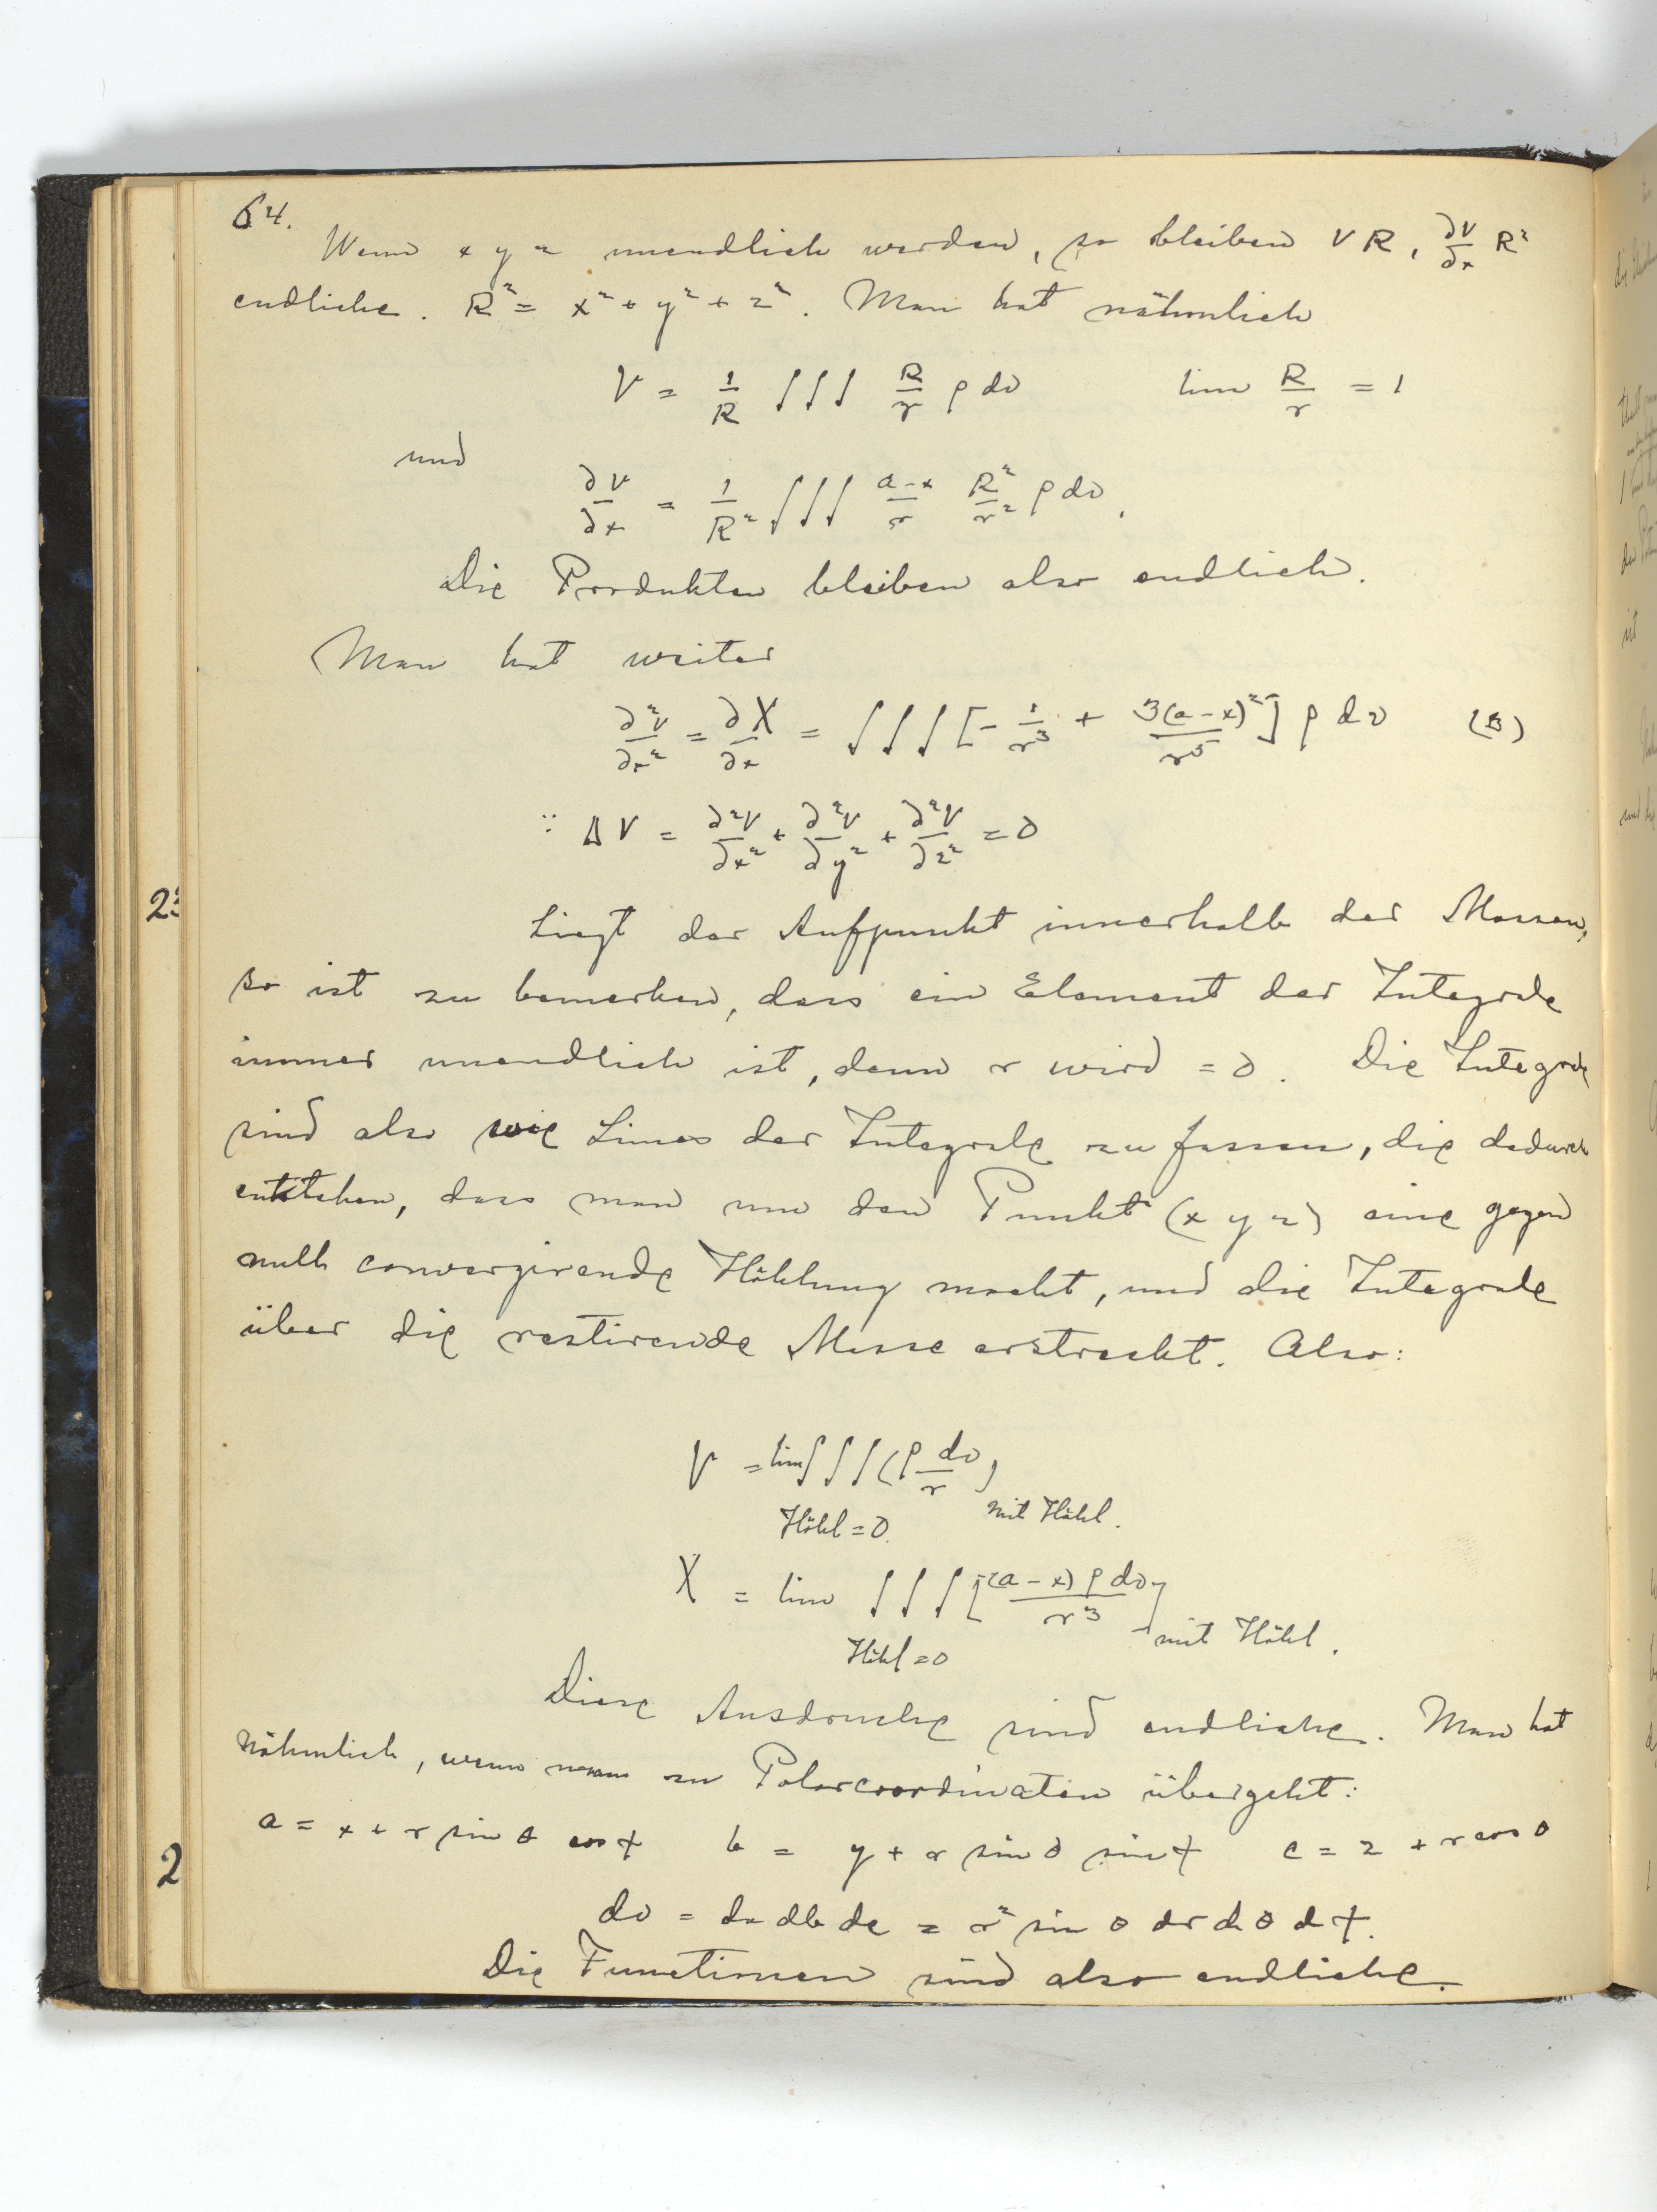 64.
Wenn x y z unendlich werden, so bleiben V R, ∂V/∂x R²
endliche. R² = x² + y² + z². Man hat nähmlich
V = 1/R ∫∫∫ R/r ρ dv lim R/r = 1
und
∂V/∂x = 1/R² ∫∫∫ (a-x)/r R²/r² ρ dv.
Die Produkten bleiben also endlich.
Man hat weiter
∂²V/∂x² = ∂X/∂x = ∫∫∫ [- 1/r³ + 3(a-x)²/r⁵] ρ dv (3)
∵ ΔV = ∂²V/∂x² + ∂²V/∂y² + ∂²V/∂z² = 0
23
Liegt der Aufpunkt innerhalb der Massen,
so ist zu bemerken, dass ein Element der Integrale
immer unendlich ist, denn r wird = 0. Die Integrale
sind also wie Limes der Integrale zu fassen, die dadurch
entstehen, dass man um den Punkt (x y z) eine gegen
null convergirende Höhlung macht, und die Integrale
über die restirende Masse erstreckt. Also:
V = lim ∫∫∫ (ρ dv/r)
Höhl = 0. mit Höhl.
X = lim ∫∫∫ [(a-x) ρ dv/r³]
Höhl = 0 mit Höhl.
Diese Ausdrucke sind endliche. Man hat
nähmlich, wenn man zu Polarcoordinaten übergeht:
a = x + r sin θ cos φ b = y + r sin θ sin φ c = z + r cos θ
2
dv = da db dc = r² sin θ dr dθ dφ.
Die Functionen sind also endliche.